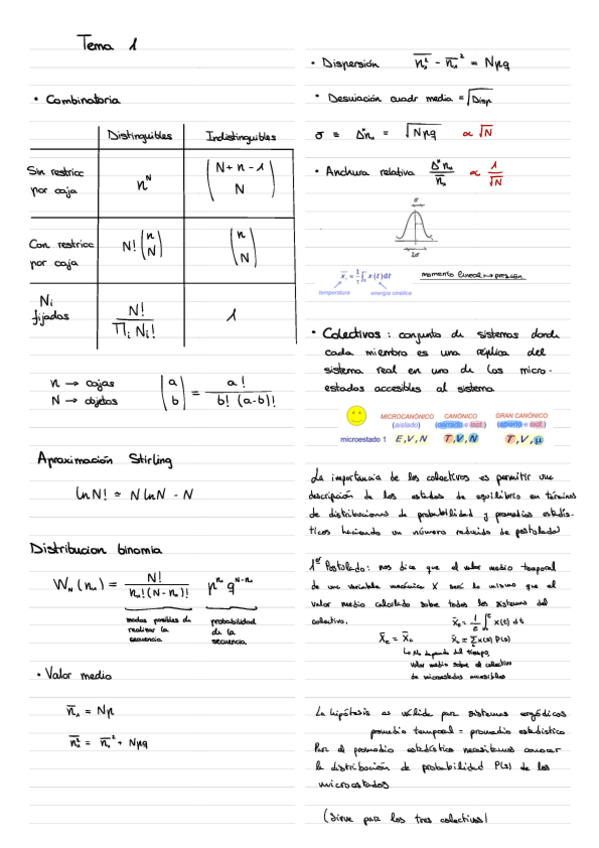 Tema 1
• Combinatoria
Distinguibles Indistinguibles
Sin restricc por caja n^N (N+n-1 / N)
Con restricc por caja N! (n / N) (n / N)
Ni fijados N! / ∏i Ni! 1
n → cajas (a / b) = a! / b! (a-b)!
N → objetos
Aproximación Stirling
ln N! ≃ N ln N - N
Distribucion binomia
W_N (n₁) = N! / n₁! (N-n₁)! p^n₁ q^N-n₁
modos posibles de realizar la secuencia
probabilidad de la secuencia
• Valor medio
n̄₁ = Np
n₁² = n̄₁² + Npq
• Dispersión n₁² - n̄₁² = Npq
• Desviación cuadr media = √Disp
σ ≡ Δ*n₁ = √Npq ∝ √N
• Anchura relativa Δ*n₁ / n̄₁ ∝ 1/√N
σ
2σ
= 1/τ ∫ x(t) dt
temperatura energía cinética
momento lineal → presión
• Colectivos: conjunto de sistemas donde
cada miembro es una réplica del
sistema real en uno de los micro-
estados accesibles al sistema
MICROCANÓNICO CANÓNICO GRAN CANÓNICO
(aislado) (cerrado e isot.) (abierto e isot.)
microestado 1 E,V,N T,V,N T,V,μ
La importancia de los colectivos es permitir una
descripción de los estados de equilibrio en términos
de distribuciones de probabilidad y promedios estadís-
ticos haciendo un número reducido de postulados
1er Postulado: nos dice que el valor medio temporal
de una variable mecánica X será lo mismo que el
valor medio calculado sobre todos los sistemas del
colectivo.
∫ x(t) dt
Σ x(s) P(s)
Lo No depende del tiempo,
valor medio sobre el colectivo
de microestados accesibles
La hipótesis es válida para sistemas ergódicos
promedio temporal = promedio estadístico
Para el promedio estadístico necesitamos conocer
la distribución de probabilidad P(s) de los
microestados
(Sirve para los tres colectivos)